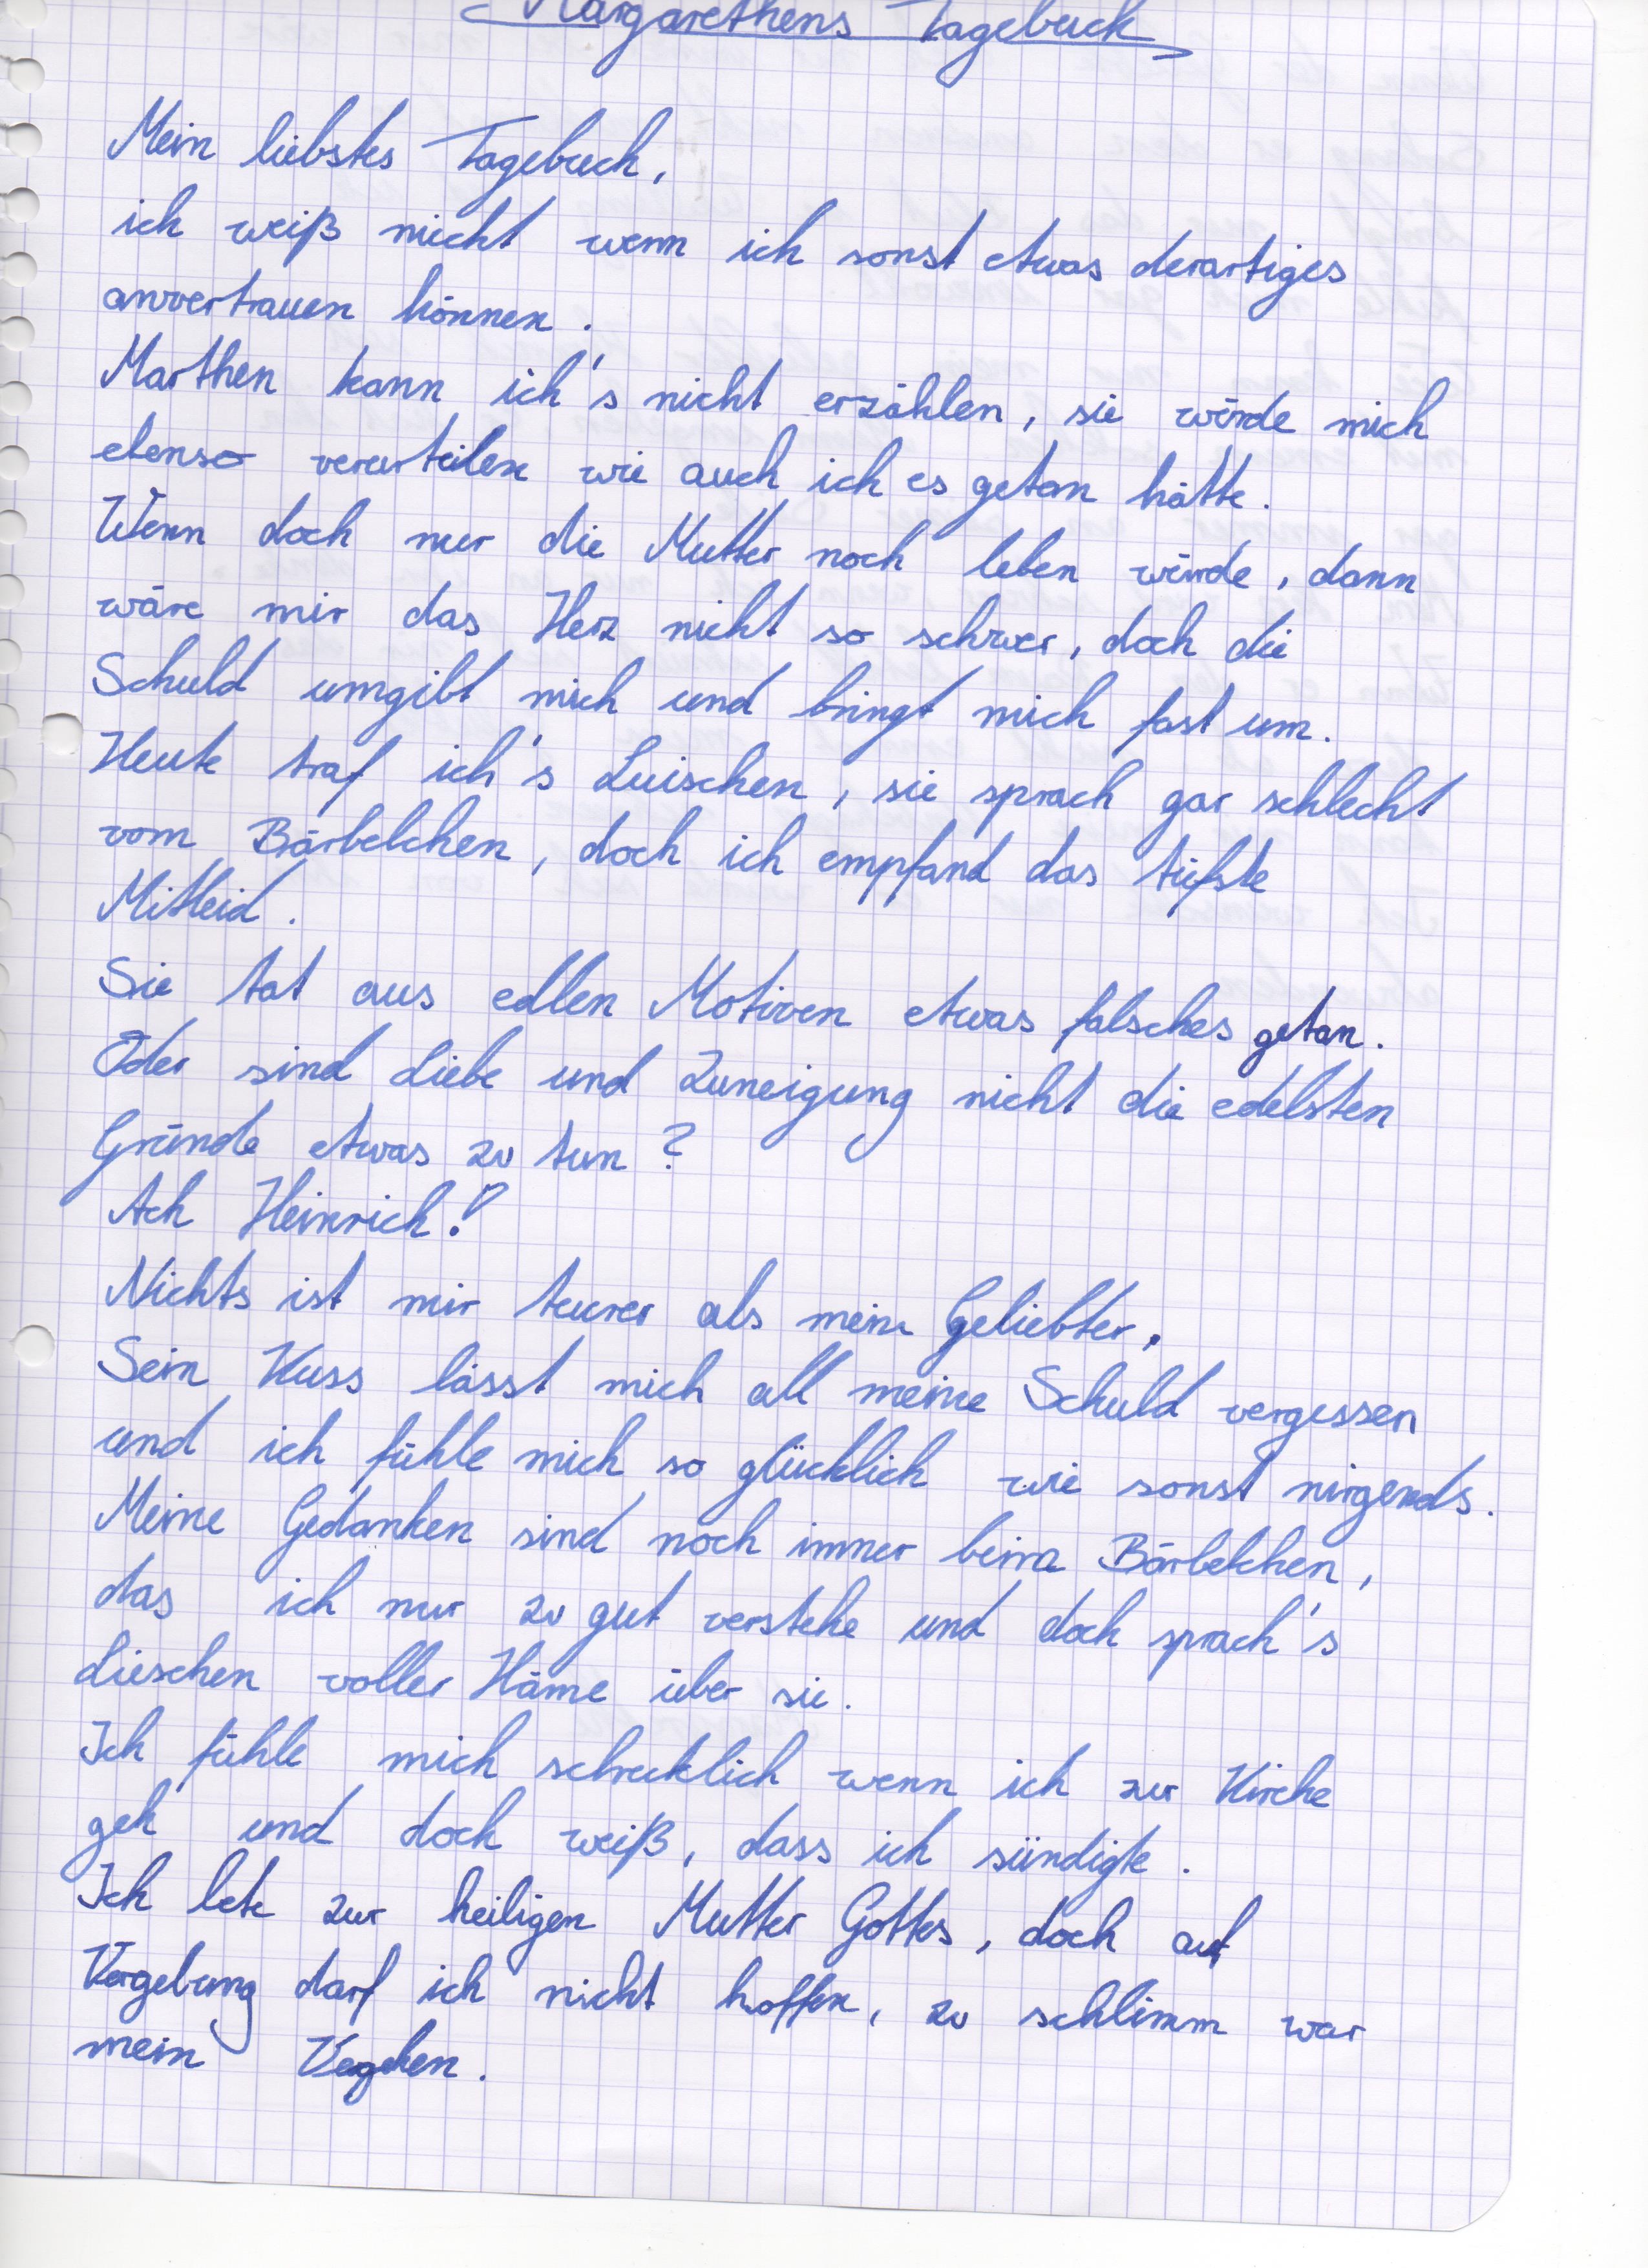 Margarethens Tagebuch
Mein liebstes Tagebuch,
ich weiß nicht wenn ich sonst etwas derartiges
anvertrauen können.
Marthen kann ich's nicht erzählen, sie würde mich
ebenso verurteilen wie auch ich es getan hätte.
Wenn doch nur die Mutter noch leben würde, dann
wäre mir das Herz nicht so schwer, doch die
Schuld umgibt mich und bringt mich fast um.
Heute traf ich's Luischen, sie sprach gar schlecht
vom Bärbelchen, doch ich empfand das tiefste
Mitleid.
Sie tat aus edlen Motiven etwas falsches getan.
Oder sind Liebe und Zuneigung nicht die edelsten
Gründe etwas zu tun?
Ach Heinrich!
Nichts ist mir teurer als mein Geliebter.
Sein Kuss lässt mich all meine Schuld vergessen
und ich fühle mich so glücklich wie sonst nirgends.
Meine Gedanken sind noch immer beim Bärbelchen,
das ich nur zu gut verstehe und doch sprach's
Lieschen voller Häme über sie.
Ich fühle mich schrecklich wenn ich zur Kirche
geh und doch weiß, dass ich sündigte.
Ich bete zur heiligen Mutter Gottes, doch auf
Vergebung darf ich nicht hoffen, zu schlimm war
mein Vergehen.